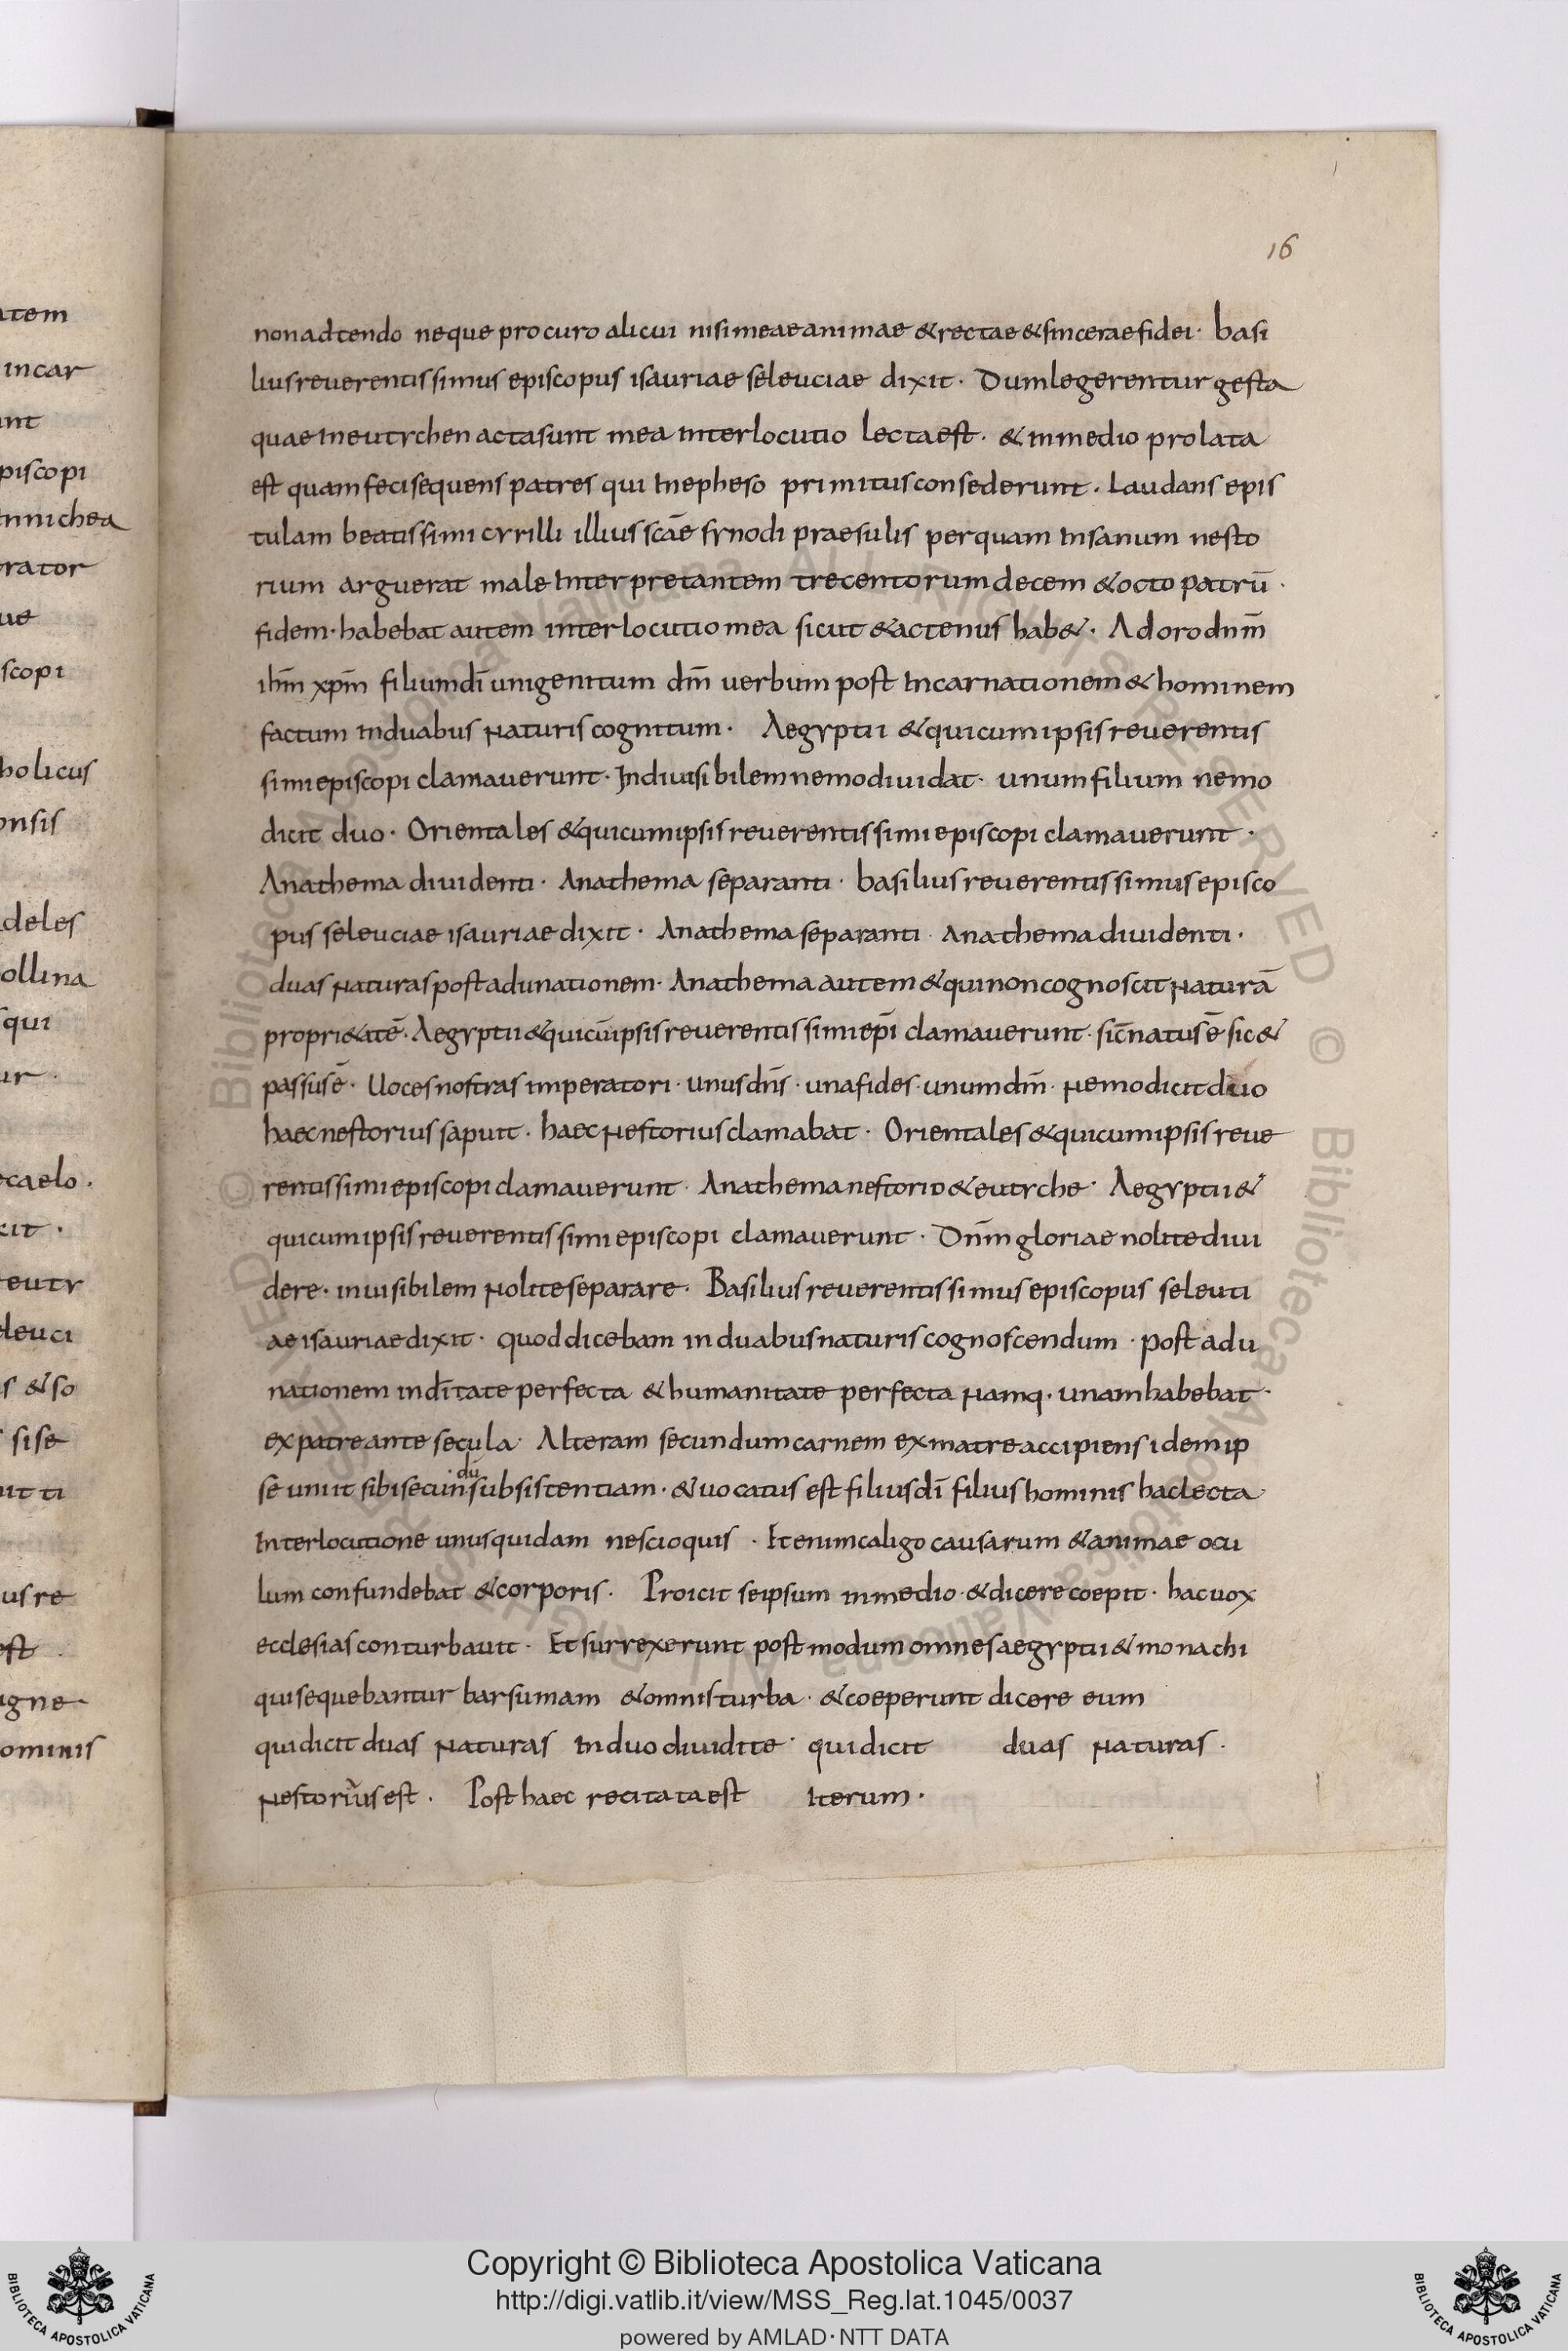 16
non adtendo neque procuro alicui nisi meae animae & rectae & sincerae fidei · basi
lius reuerentissimus episcopus isauriae seleuciae dixit · Dum legerentur gesta
quae in eutychen acta sunt mea interlocutio lecta est · & in medio prolata
est quam feci sequens patres qui in epheso primitus consederunt · Laudans epis
tulam beatissimi cyrilli illius scāe synodi praesulis per quam insanum nesto
rium arguerat male interpretantem trecentorum decem & octo patrū ·
fidem · habebat autem interlocutio mea sicut & actenus hab& · Adoro dnm̄
ihm̄ xpm̄ filium dī unigenitum dm̄ uerbum post incarnationem & hominem
factum in duabus naturis cognitum · Aegyptii & qui cum ipsis reuerentis
simi episcopi clamauerunt · Indiuisibilem nemo diuidat · unum filium nemo
dicit duo · Orientales & qui cum ipsis reuerentissimi episcopi clamauerunt ·
Anathema diuidenti · Anathema separanti · basilius reuerentissimus episco
pus seleuciae isauriae dixit · Anathema separanti · Anathema diuidenti ·
duas naturas post adunationem · Anathema autem & qui non cognoscit naturā
propri&atē · Aegyptii & qui cū ipsis reuerentissimi epī clamauerunt · sic̄ natus ē sic &
passus ē · Uoces nostras imperatori · unus dn̄s · una fides · unum dm̄ · nemo dicit duo
haec nestorius sapuit · haec nestorius clamabat · Orientales & qui cum ipsis reue
rentissimi episcopi clamauerunt · Anathema nestorio & eutyche · Aegyptii &
qui cum ipsis reuerentissimi episcopi clamauerunt · Dnm̄ gloriae nolite diui
dere · inuisibilem nolite separare · Basilius reuerentissimus episcopus seleuti
ae isauriae dixit · quod dicebam in duabus naturis cognoscendum · post adu
nationem in dītate perfecta & humanitate perfecta namq · unam habebat ·
ex patre ante secula · Alteram secundum carnem ex matre accipiens idem ip
se uniit sibi secun dū subsistentiam · & uocatus est filius dī filius hominis hac lecta
interlocutione unus quidam nescio quis · Etenim caligo causarum & animae ocu
lum confundebat & corporis · Proicit seipsum in medio · & dicere coepit · hac uox
ecclesias conturbauit · Et surrexerunt postmodum omnes aegyptii & monachi
qui sequebantur barsumam & omnis turba · & coeperunt dicere eum
qui dicit duas naturas in duo diuidite · qui dicit duas naturas ·
nestorius est · Post haec recitata est iterum ·
atem
incar
unt
piscopi
nnichea
rator
ue
scopi
holicus
onsis
deles
ollina
qui
ur ·
caelo ·
xit ·
eutr
leuci
s & so
sise
it ti
us re
est
igne
ominis
Copyright © Biblioteca Apostolica Vaticana
http://digi.vatlib.it/view/MSS_Reg.lat.1045/0037
powered by AMLAD·NTT DATA
BIBLIOTECA APOSTOLICA VATICANA
BIBLIOTECA APOSTOLICA VATICANA